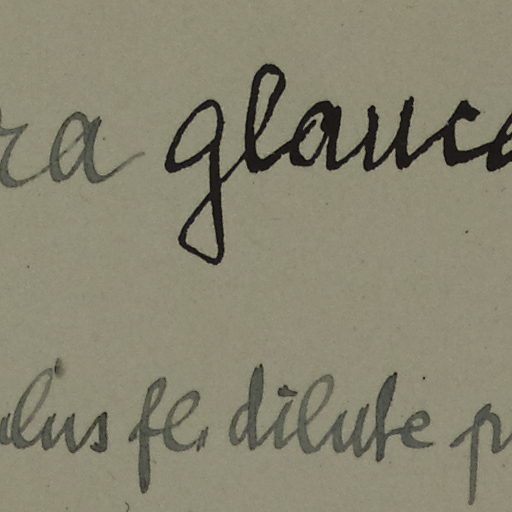 ra glauca
ulus fl. dilute p